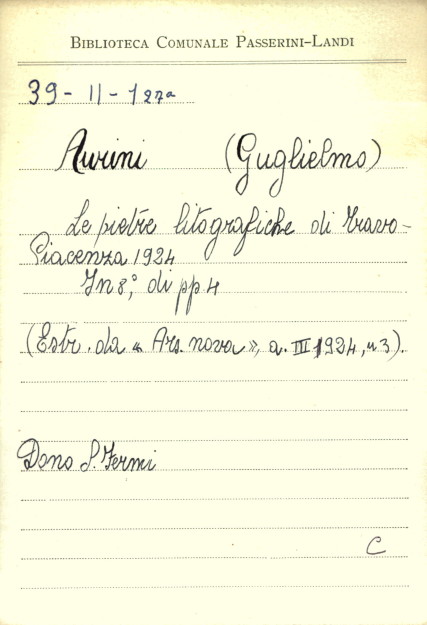 BIBLIOTECA COMUNALE PASSERINI-LANDI
39 - II - 127a
Aurini (Guglielmo)
Le pietre litografiche di Travo -
Piacenza 1924
In 8,° di pp 4
(Estr. da « Ars. nova », a. III 1924, n 3).
Dono S. Fermi
C